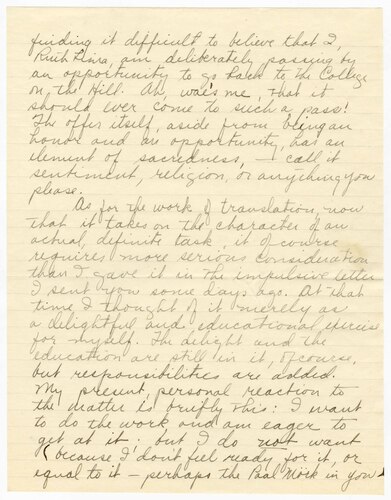 finding it difficult to believe that I,
Ruth Elvira, am deliberately passing by
an opportunity to go back to the College
on the Hill. Ah, wae's me, that it
should ever come to such a pass!
The offer itself, aside from being an
honor and are opportunity, has an
element of sacredness, — call it
sentiment, religion, or anything you
please.
As for the work of translation, now
that it takes on the character of an
actual, definite task, it of course
requires more serious consideration
than I gave it in the impulsive letter
I sent you some days ago. At that
time I thought of it merely as
a delightful and educational exercise
for myself. The delight and the
education are still in it, of course,
but responsibilities are added.
My present, personal reaction to
the matter is briefly this: I want
to do the work and am eager to
get at it; but I do not want
(because I don't feel ready for it, or
equal to it — perhaps the Paal Mörk in you